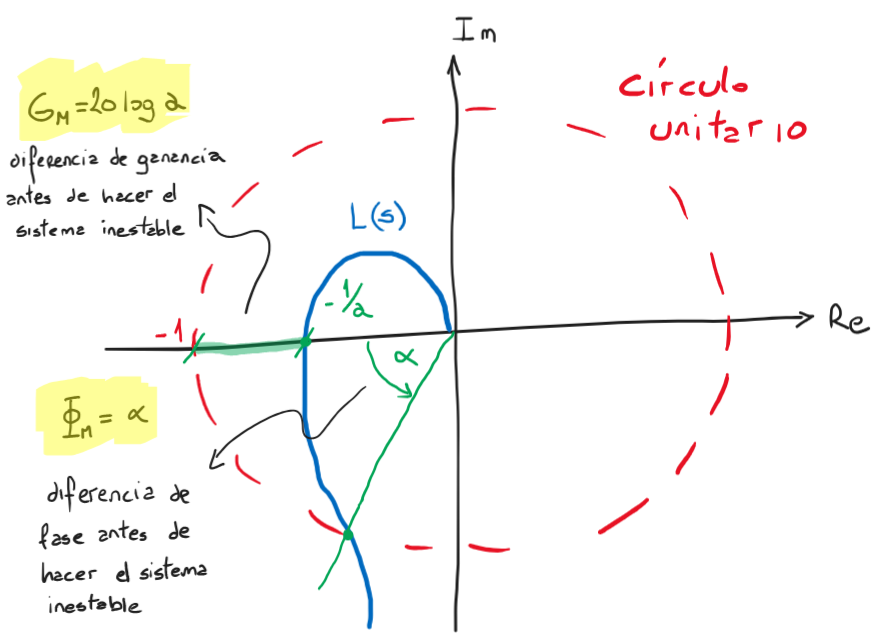 Im
Círculo
unitario
G_M = 20 log a
diferencia de ganancia
antes de hacer el
sistema inestable
L(s)
-1/a
-1
Re
α
Φ_M = α
diferencia de
fase antes de
hacer el sistema
inestable